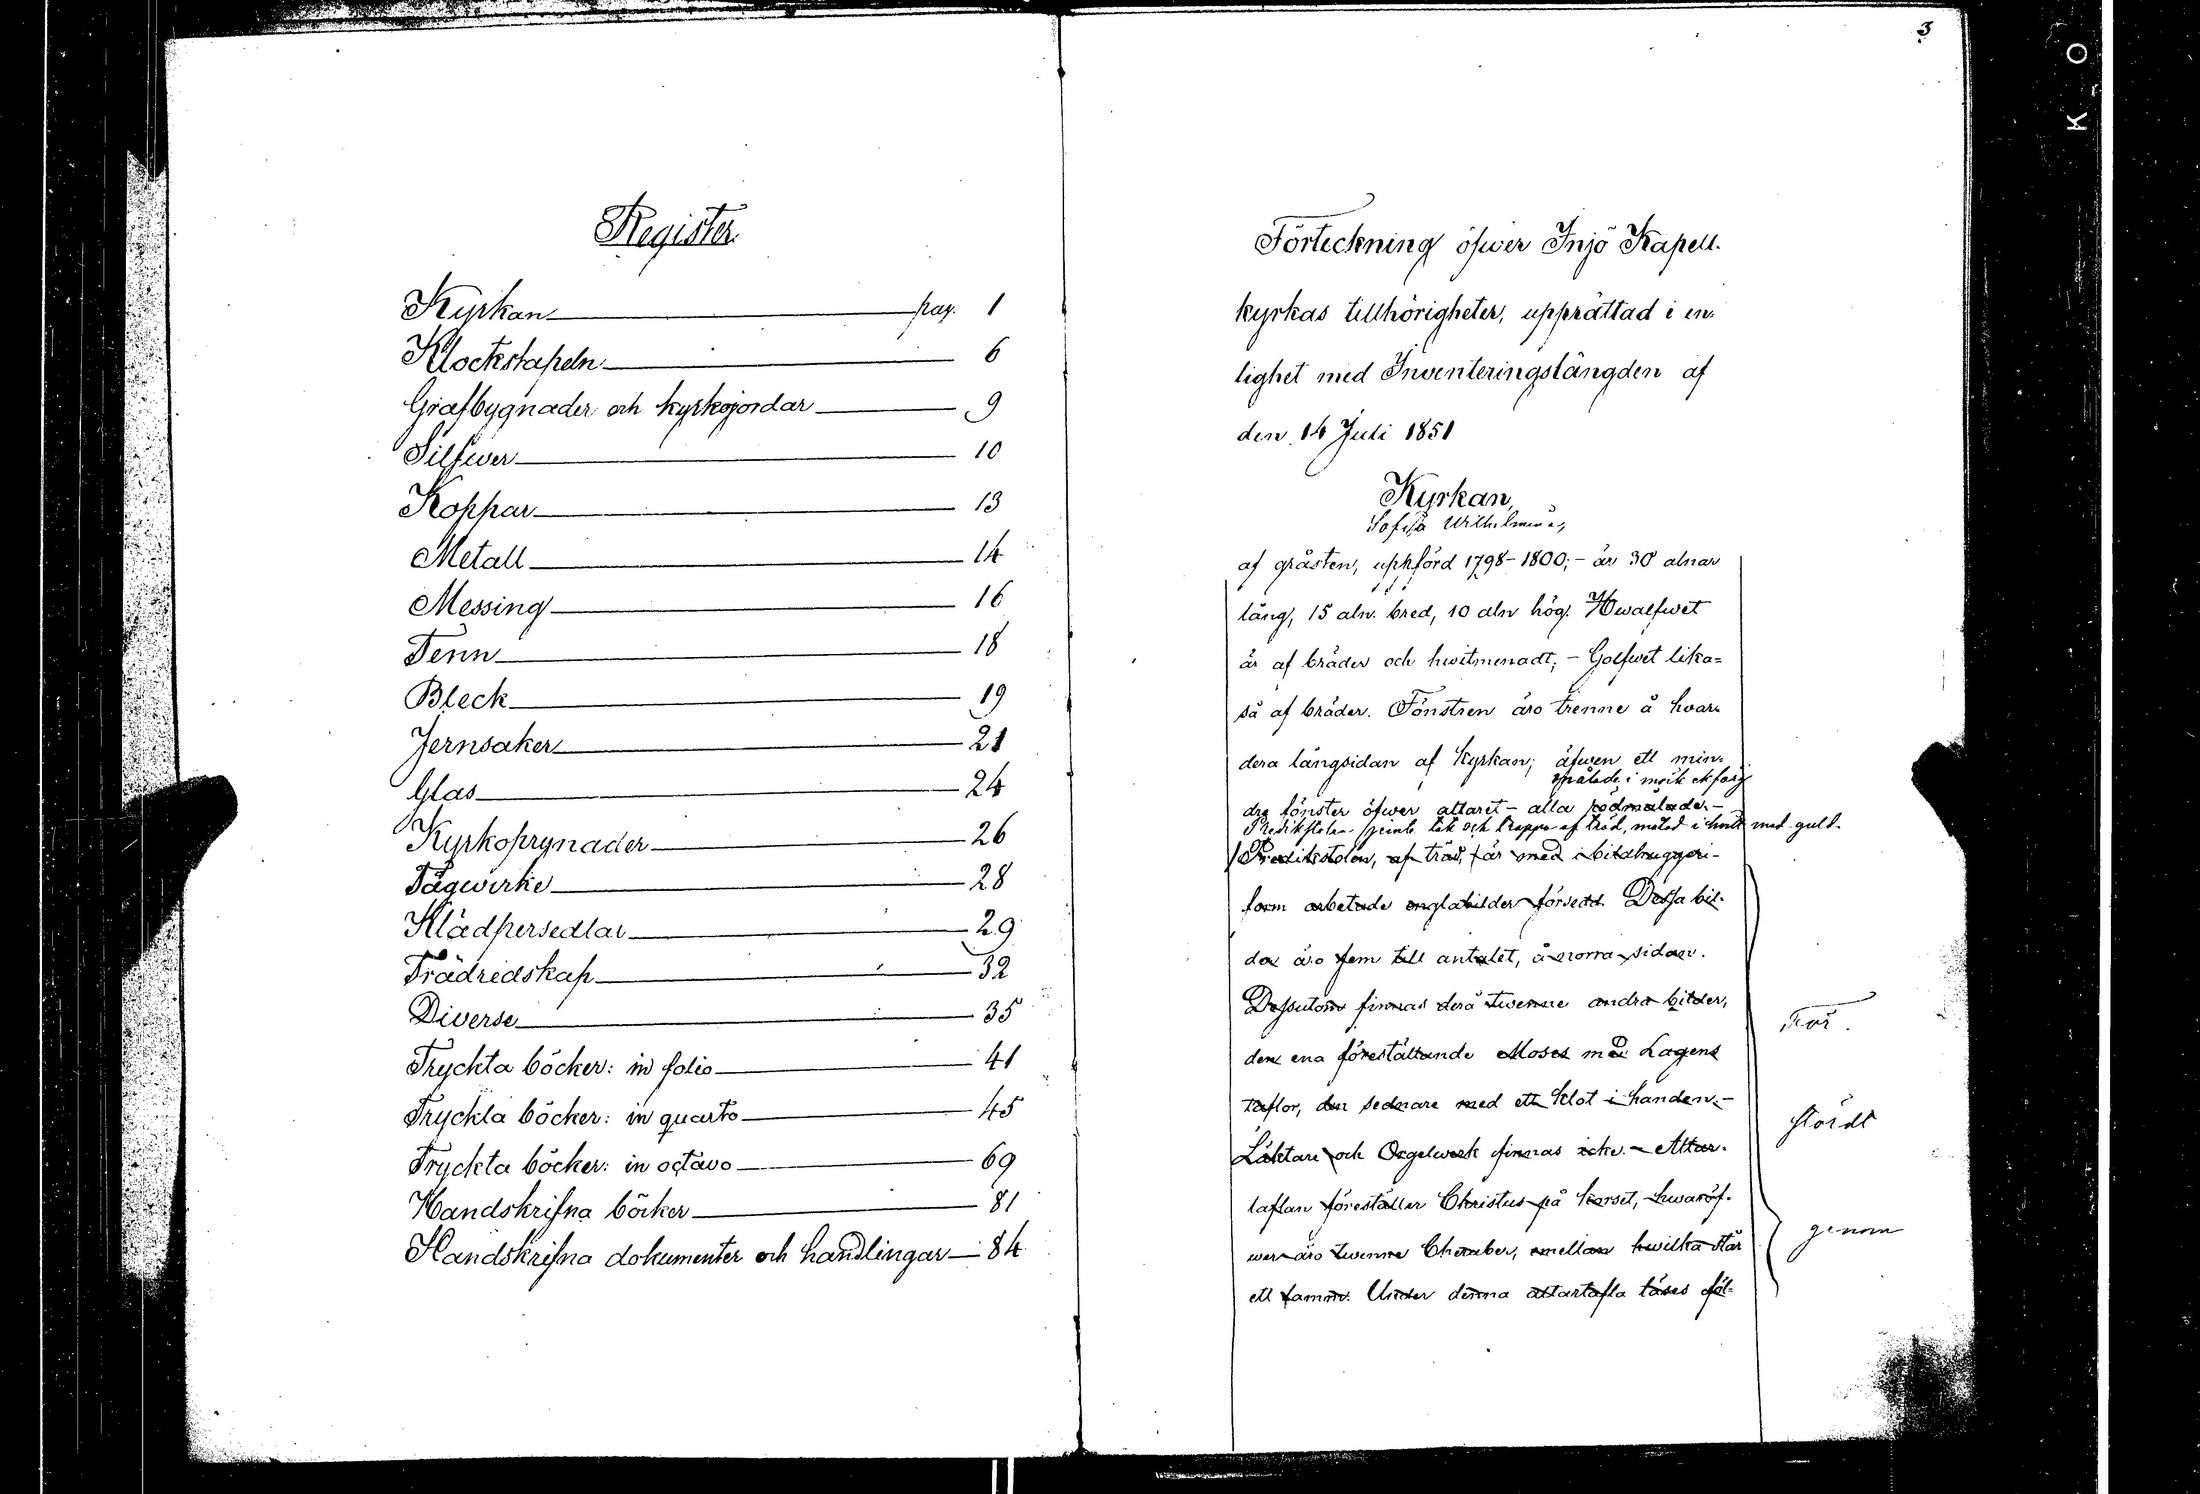 Register
Kyrkan pag. 1
Klockstapeln 6
Grafbygnader och kyrkojordar 9
Silfwer 10
Koppar 13
Metall 14
Messing 16
Tenn 18
Bleck 19
Jernsaker 21
Glas 24
Kyrkoprynader 26
Tågwirke 28
Klädpersedlar 29
Trädredskap 32
Diverse 35
Tryckta böcker: in folio 41
Tryckta böcker: in quarto 45
Tryckta böcker: in octavo 69
Handskrifna böcker 81
Handskrifna dokumenter och handlingar 84
3
Förteckning öfwer Injö Kapell-
kyrkas tillhörigheter, upprättad i en-
lighet med Inventeringslängden af
den 14 Juli 1851
Kyrkan,
Sofia Wilhelmina,
af gråsten, uppförd 1798-1800; - är 30 alnar
lång, 15 aln. bred, 10 aln hög. Hwalfwet
är af bräder och hwitmenadt; - Golfwet lika=
så af bräder. Fönstren äro trenne å hvar-
dera långsidan af Kyrkan; äfwen ett min-
målade i mörk ekfärg
dre fönster öfwer altaret - alla rödmålade. -
Predikstolen jemte tak och trappa af träd, målad i hvitt med guld.
Predikstolen, af träd, är med i bildhuggeri-
form arbetade englabilder försedd. Dessa bil-
der äro fem till antalet, å norra sidan.
Dessutom finnas derå twenne andra bilder,
den ena föreställande Moses med Lagens
taflor, den sednare med ett klot i handen. -
Läktare och Orgelwerk finnas icke. - Altar-
taflan föreställer Christus på korset, hwaröf-
wer äro twenne Cheruber, emellan hwilka står
ett Lamm. Under denna altartafla läses föl-
För
stördt
genom
K O